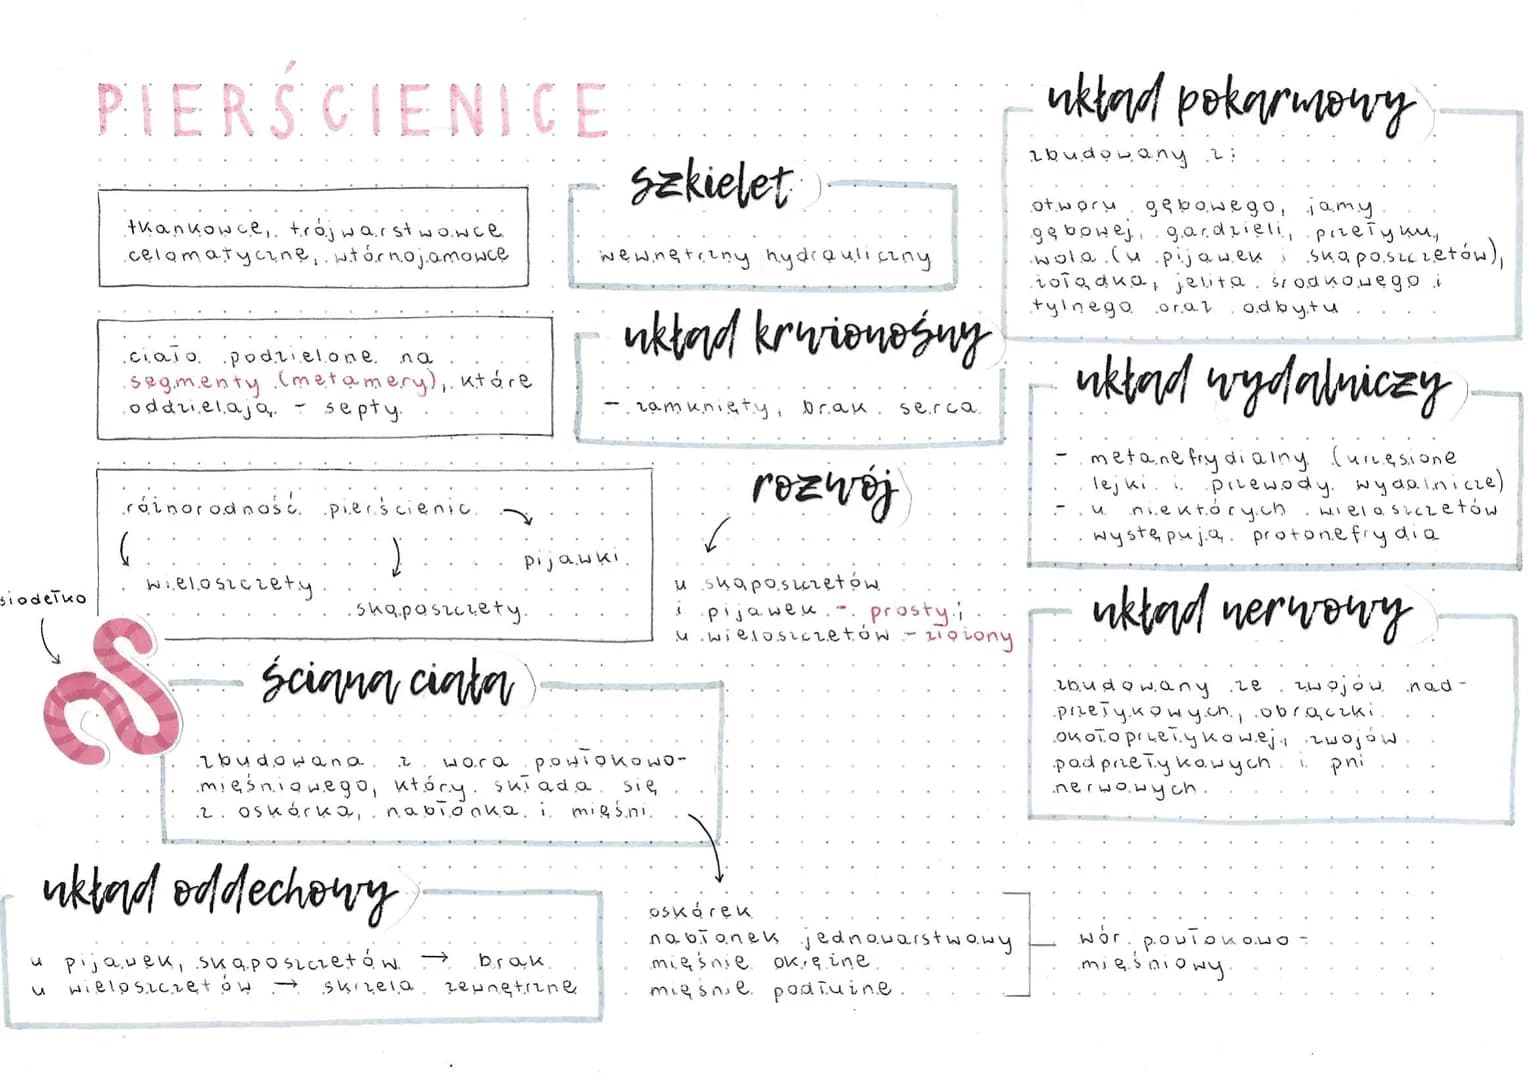 PIERŚCIENICE
tkankowce, trójwarstwowce
celomatyczne, wtórnojamowce
ciało podzielone na
segmenty (metamery), które
oddzielają - septy.
różnorodność pierścienic
wieloszczety
skąposzczety
pijawki
siodełko
szkielet
wewnętrzny hydrauliczny
układ krwionośny
- zamknięty, brak serca
rozwój
u skąposzczetów
i pijawek - prosty;
u wieloszczetów - złożony
ściana ciała
zbudowana z wora powłokowo-
mięśniowego, który składa się
z oskórka, nabłonka i mięśni.
oskórek
nabłonek jednowarstwowy
mięśnie okrężne
mięśnie podłużne
wór powłokowo-
mięśniowy
układ oddechowy
u pijawek, skąposzczetów → brak
u wieloszczetów → skrzela zewnętrzne
układ pokarmowy
zbudowany z:
otworu gębowego, jamy
gębowej, gardzieli, przełyku,
wola (u pijawek i skąposzczetów),
żołądka, jelita środkowego i
tylnego oraz odbytu
układ wydalniczy
- metanefrydialny (urzęsione
lejki i przewody wydalnicze)
- u niektórych wieloszczetów
występują protonefrydia
układ nerwowy
zbudowany ze zwojów nad-
przełykowych, obrączki
okołoprzełykowej, zwojów
podprzełykowych i pni
nerwowych.